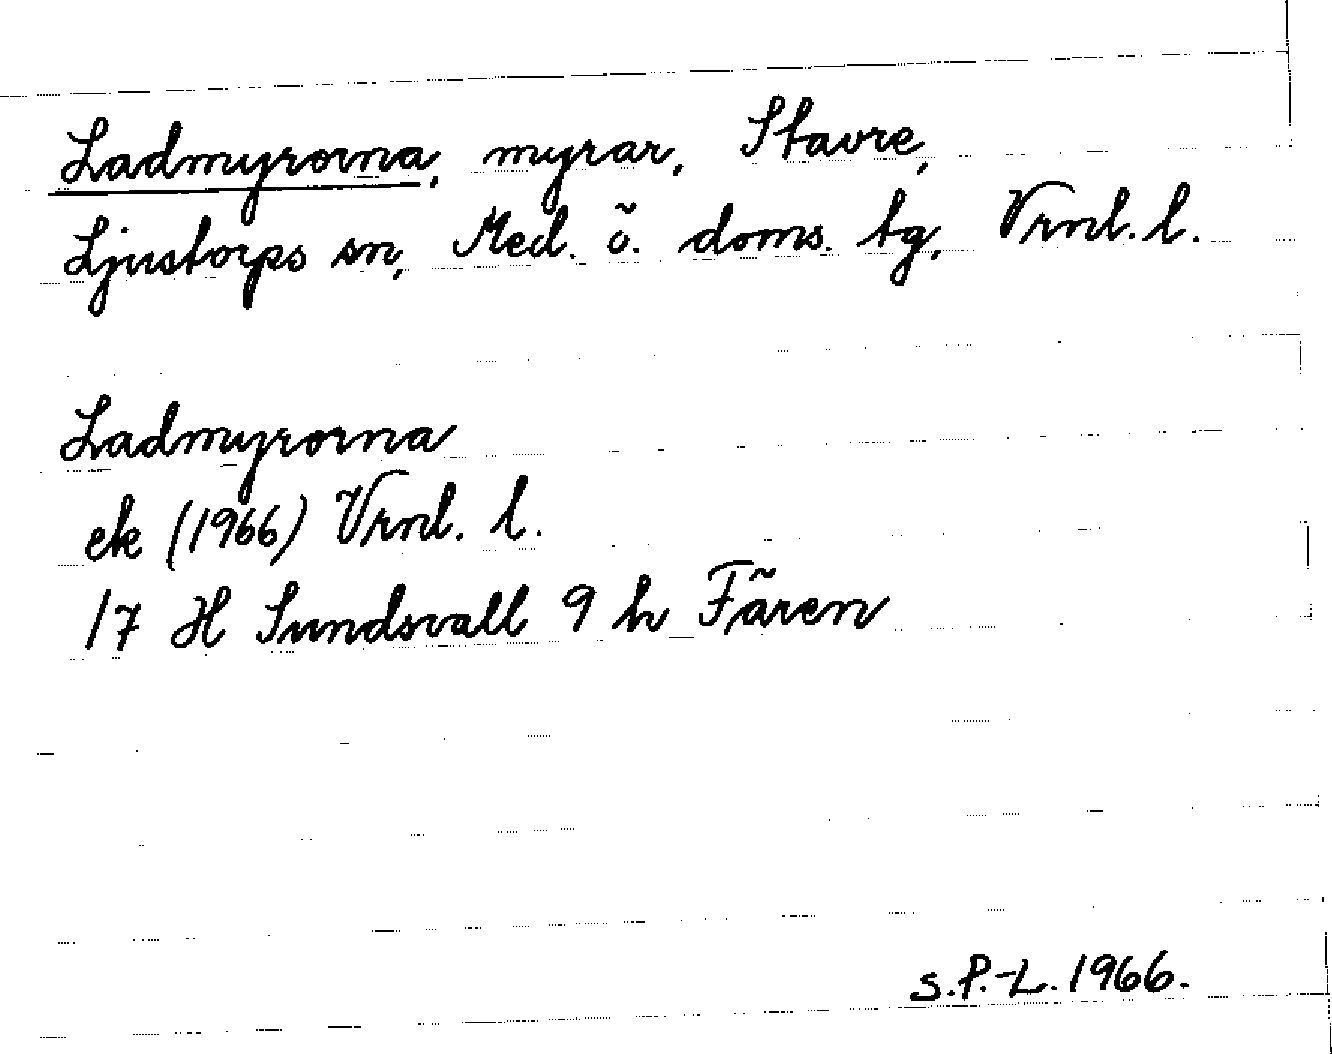 Ladmyrorna, myrar, Stavre,
Ljustorps sn, Med. ö. doms. tg, Vrnl. l.
Ladmyrorna
ek (1966) Vrnl. l.
17 H Sundsvall 9 h Fären
S.P.-L. 1966.